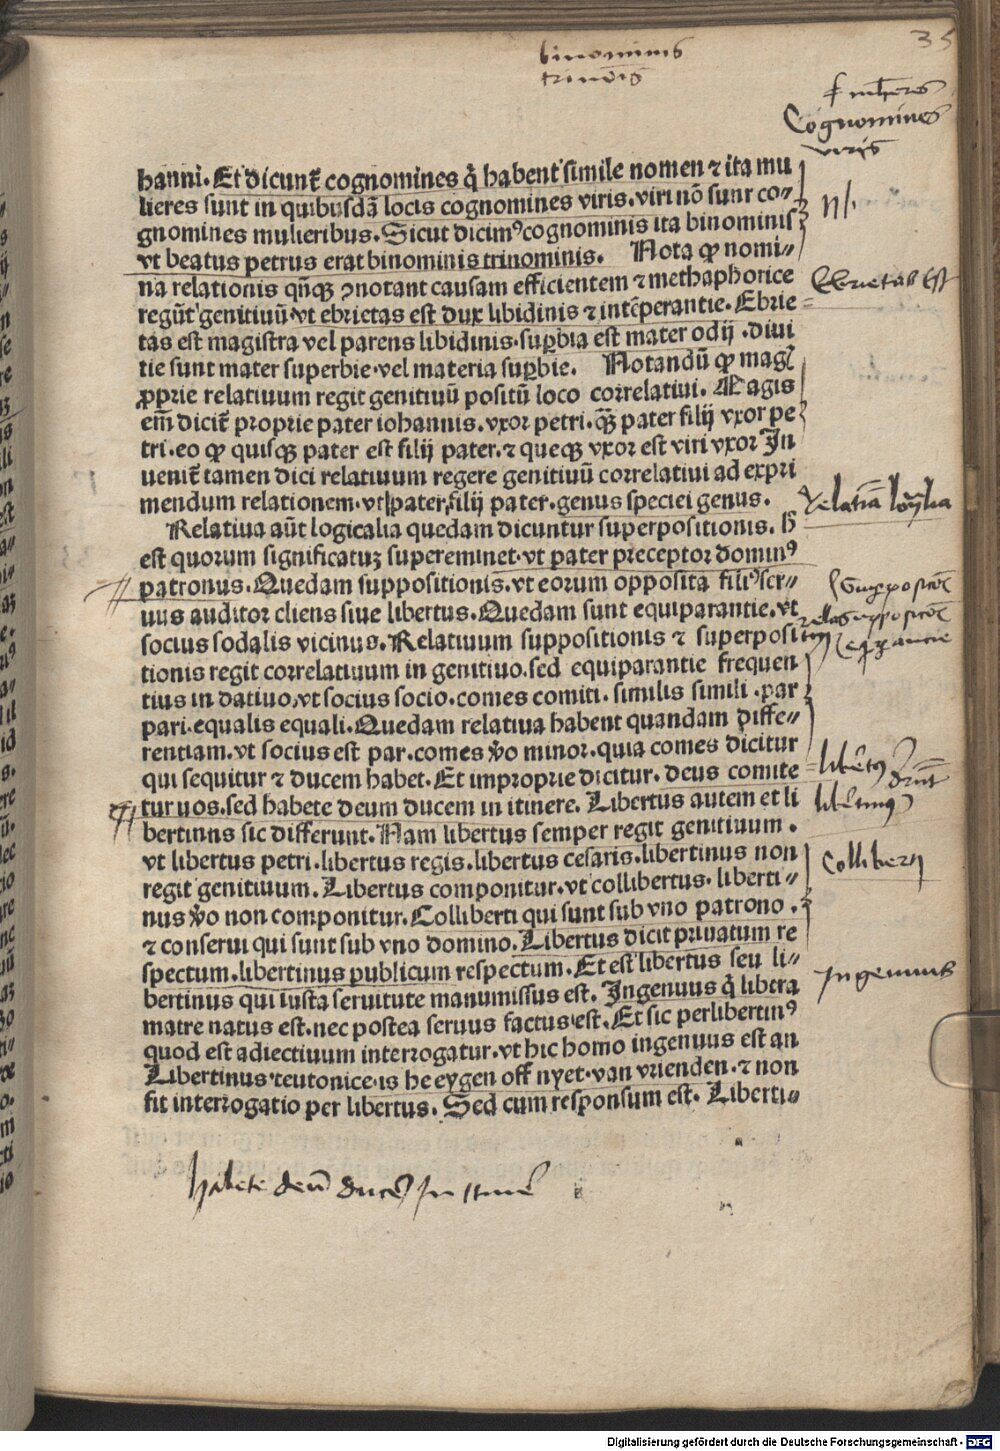 35
binominis
trinois
Cognomines
viris
hanni. Et dicunt᷑ cognomines q̇ habent simile nomen ⁊ ita mu
lieres sunt in quibusdā locis cognomines viris. viri nō sunt co⸗
gnomines mulieribus. Sicut dicimꝰ cognominis ita binominis
vt beatus petrus erat binominis trinominis. Nota ꝙ nomi⸗
na relationis qn̄qꝫ ꝯnotant causam efficientem ⁊ methaphorice
regūt genitiuū. vt ebrietas est dux libidinis ⁊ intēperantie. Ebrie
tas est magistra vel parens libidinis. suꝑbia est mater odij. diui
tie sunt mater superbie. vel materia suꝑbie. Notandū ꝙ magꝭ
ꝓprie relatiuum regit genitiuū positū loco correlatiui. Magis
em̄ dicit᷑ proprie pater iohannis. vxor petri. qꝫ pater filij vxor pe
tri. eo ꝙ quisqꝫ pater est filij pater. ⁊ queqꝫ vxor est viri vxor In
uenit᷑ tamen dici relatiuum regere genitiuū correlatiui ad expri
mendum relationem. vt pater filij pater. genus speciei genus.
Relatiua aūt logicalia quedam dicuntur superpositionis. h̄
est quorum significatuꝫ supereminet. vt pater preceptor dominꝰ
patronus. Quedam suppositionis. vt eorum opposita filiꝰ ser⸗
uus auditor cliens siue libertus. Quedam sunt equiparantie. vt
socius sodalis vicinus. Relatiuum suppositionis ⁊ superposi
tionis regit correlatiuum in genitiuo. sed equiparantie frequen
tius in datiuo. vt socius socio. comes comiti. similis simili. par
pari. equalis equali. Quedam relatiua habent quandam diffe⸗
rentiam. vt socius est par. comes v̊o minor. quia comes dicitur
qui sequitur ⁊ ducem habet. Et improprie dicitur. deus comite
tur uos. sed habete deum ducem in itinere. Libertus autem et li
bertinus sic differunt. Nam libertus semper regit genitiuum.
vt libertus petri. libertus regis. libertus cesaris. libertinus non
regit genitiuum. Libertus componitur. vt collibertus. liberti⸗
nus v̊o non componitur. Colliberti qui sunt sub vno patrono.
⁊ conserui qui sunt sub vno domino. Libertus dicit priuatum re
spectum. libertinus publicum respectum. Et est libertus seu li⸗
bertinus qui iusta seruitute manumissus est. Ingenuus q̇ libera
matre natus est. nec postea seruus factus est. Et sic per libertinꝰ
quod est adiectiuum interrogatur. vt hic homo ingenuus est an
Libertinus teutonice. is he eygen off nyet. van vrienden. ⁊ non
fit interrogatio per libertus. Sed cum responsum est. Liberti⸗
Ebrietas est
Colliberti
Ingenuus
habete deū ducē in itinē
Digitalisierung gefördert durch die Deutsche Forschungsgemeinschaft - DFG